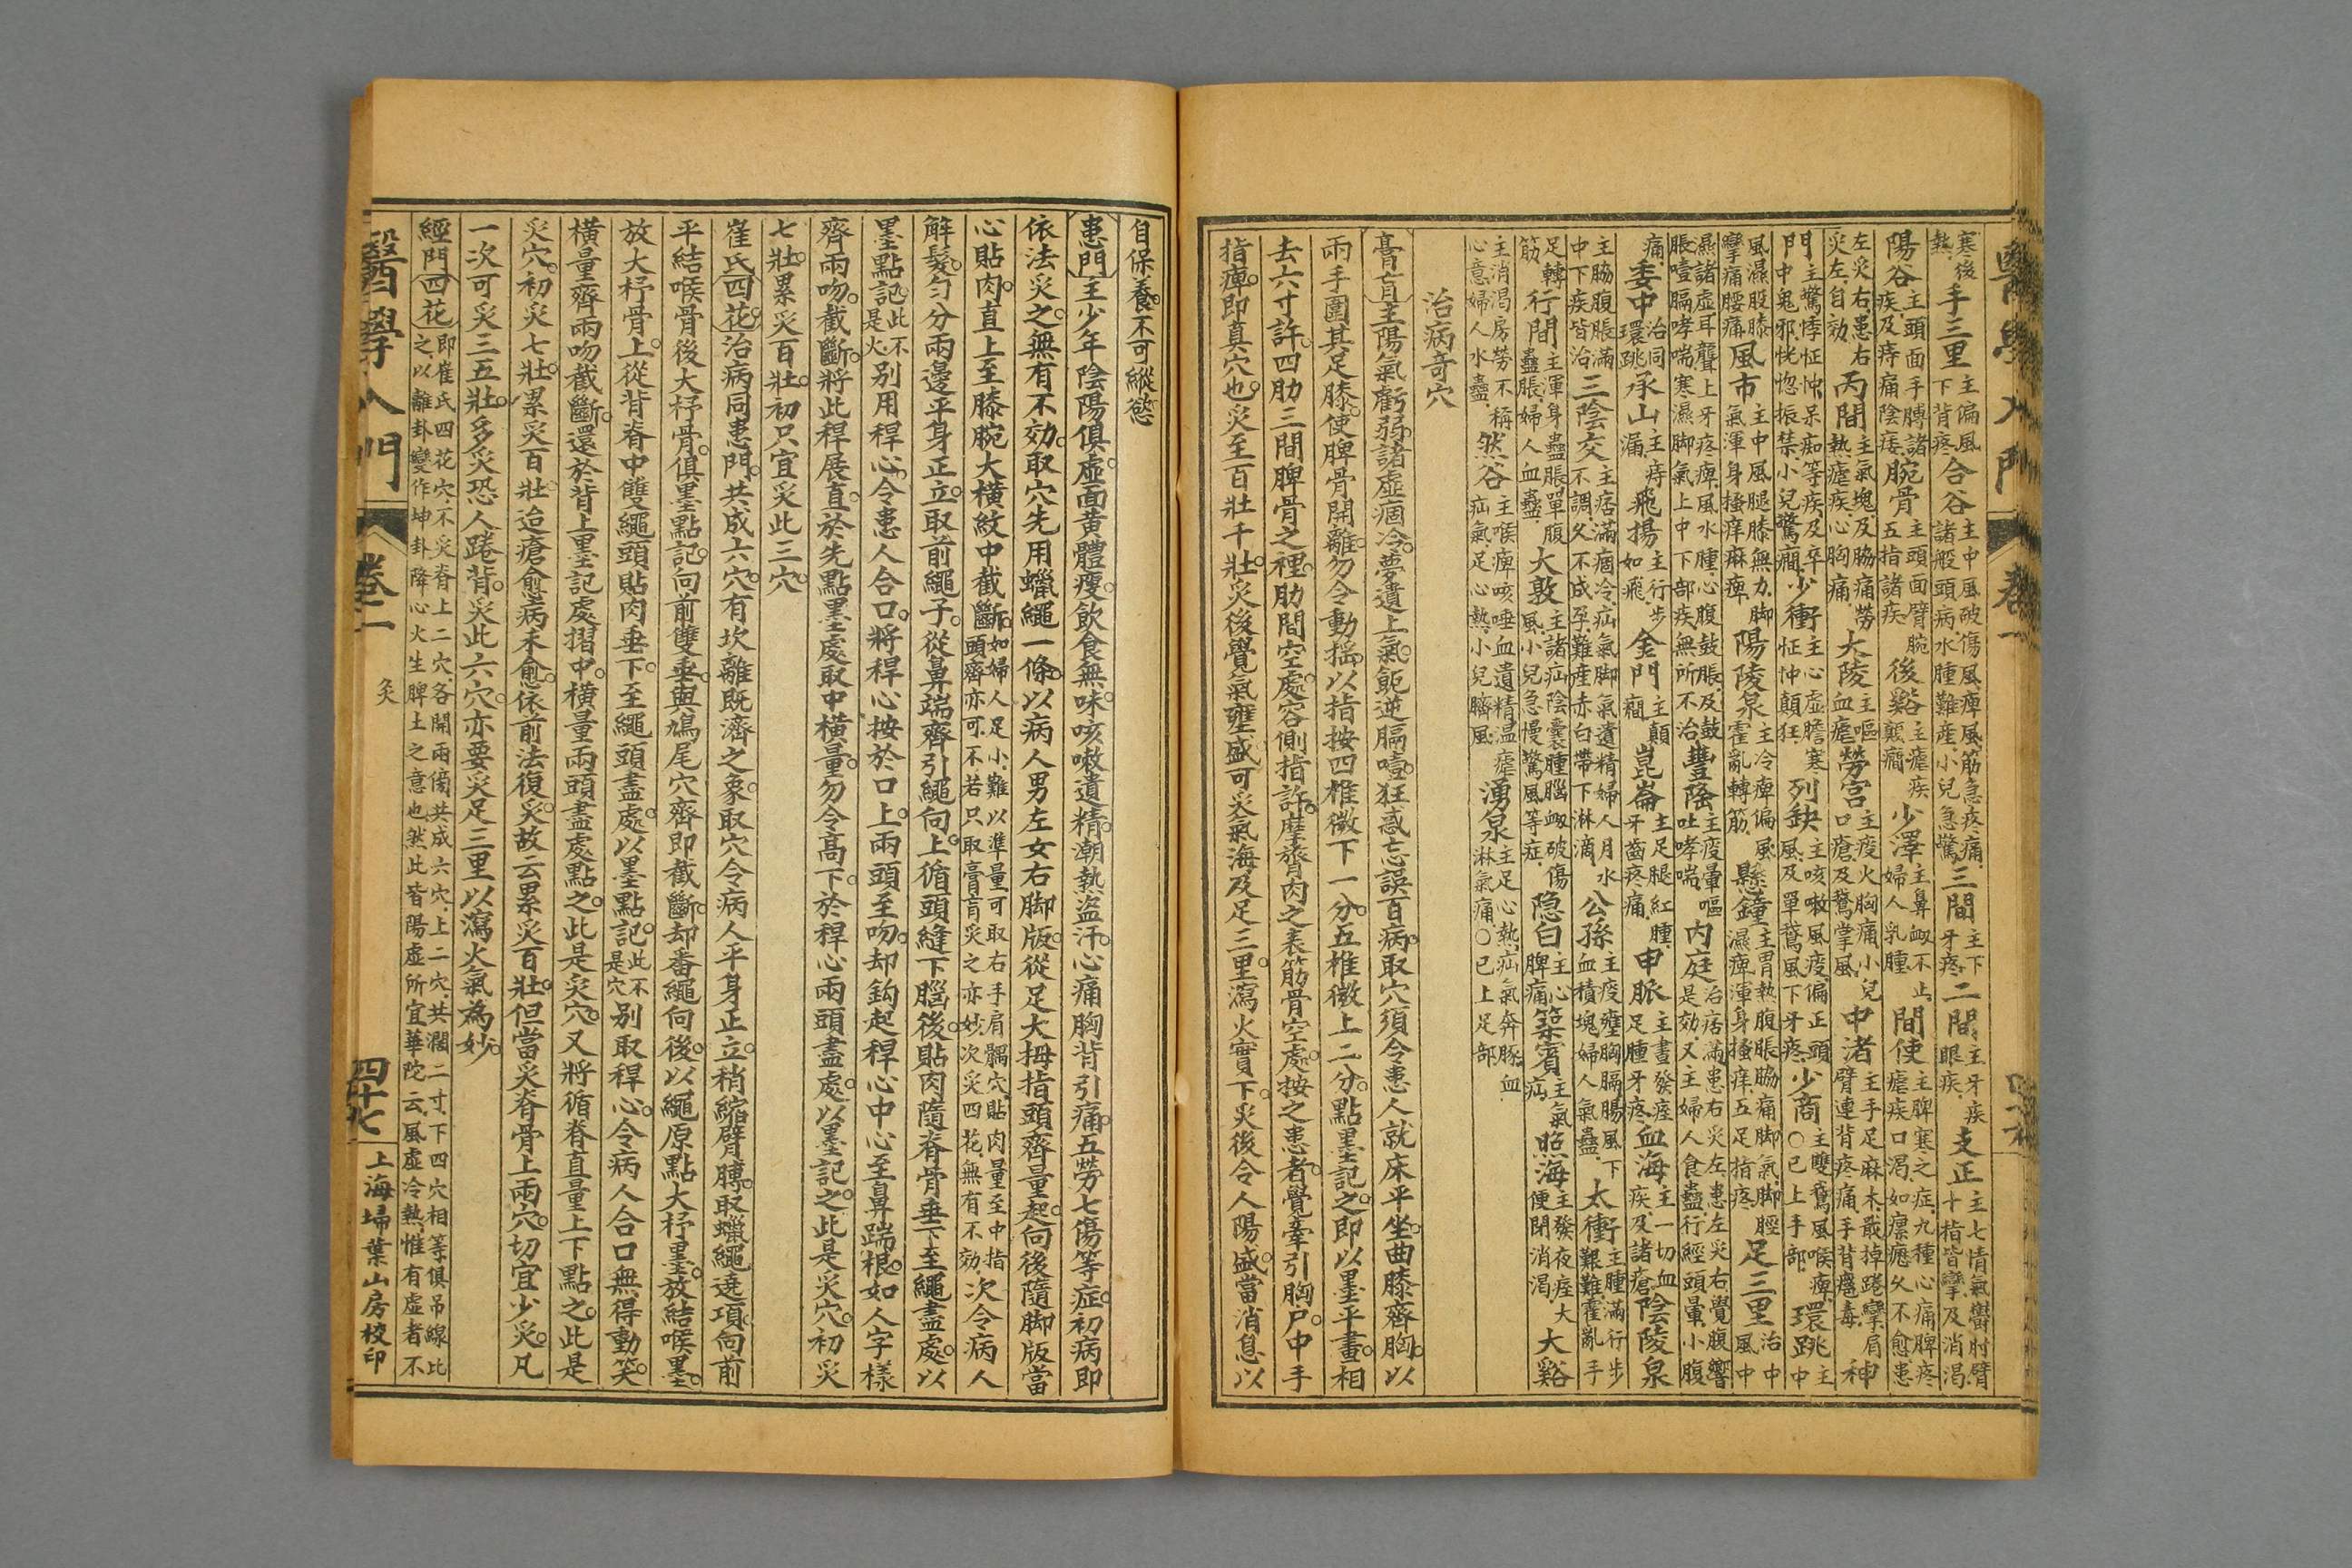 醫學入門 卷一
寒後熱手三里主偏風下背疼合谷主中風破傷風痺風筋急疼痛諸般頭病水腫難產小兒急驚三間主下牙疼二間主牙疾眼疾支正主七情氣鬱肘臂十指皆攣及消渴
陽谷主頭面手膊諸疾及痔痛陰痿腕骨主頭面臂腕五指諸疾後谿主瘧疾癲癇少澤主鼻衄不止婦人乳腫間使主脾寒之症九種心痛脾疼瘧疾口渴如瘰癧久不愈患
左灸右患右灸左自効丙間主氣塊及脇痛勞熱瘧疾心胸痛大陵主嘔血瘧勞宮主痰火胸痛小兒口瘡及鵝掌風中渚主手足麻木戰掉踡攣肩臂連背疼痛手背癰毒神
門主驚悸怔忡呆痴等疾及卒中鬼邪恍惚振禁小兒驚癇少衝主心虛膽寒怔忡顛狂列缺主咳嗽風痰偏正頭風及單鵝風下牙疼少商主雙鵝風喉痺○已上手部環跳主中
風濕股膝攣痛腰痛風市主中風腿膝無力脚氣渾身搔痒麻痺陽陵泉主冷痺偏風霍亂轉筋懸鐘主胃熱腹脹脇痛脚氣脚脛濕痺渾身搔痒五足指疼足三里治中風中
濕諸虛耳聾上牙疼痺風水腫心腹鼓脹及鼓脹噎膈哮喘寒濕脚氣上中下部疾無所不治豐隆主痰暈嘔吐哮喘內庭治痞滿患右灸左患左灸右覺腹響是効又主婦人食蠱行經頭暈小腹
痛委中治同環跳承山主痔漏飛揚主行步如飛金門主顛癇崑崙主足腿紅腫牙齒疼痛申脈主晝發痓足腫牙疼血海主一切血疾及諸瘡陰陵泉
主脇腹脹滿中下疾皆治三陰交主痞滿痼冷疝氣脚氣遺精婦人月水不調久不成孕難產赤白帶下淋滴公孫主痰壅胸膈腸風下血積塊婦人氣蠱太衝主腫滿行步艱難霍亂手
足轉筋行間主渾身蠱脹單腹蠱脹婦人血蠱大敦主諸疝陰囊腫腦衄破傷風小兒急慢驚風等症隱白主心脾痛築賓主氣疝照海主發夜痓大便閉消渴大谿
主消渴房勞不稱心意婦人水蠱然谷主喉痺咳唾血遺精温瘧疝氣足心熱小兒臍風湧泉主足心熱疝氣奔豚血淋氣痛○已上足部
治病奇穴
膏肓主陽氣虧弱諸虛痼冷夢遺上氣呃逆膈噎狂惑忘誤百病取穴須令患人就床平坐曲膝齊胸以
兩手圍其足膝使脾骨開離勿令動搖以指按四椎微下一分五椎微上二分點墨記之即以墨平畫相
去六寸許四肋三間脾骨之裡肋間空處容側指許摩膂肉之表筋骨空處按之患者覺牽引胸戶中手
指痺即真穴也灸至百壯千壯灸後覺氣壅盛可灸氣海及足三里瀉火實下灸後令人陽盛當消息以
自保養不可縱慾
患門主少年陰陽俱虛面黃體瘦飲食無味咳嗽遺精潮熱盜汗心痛胸背引痛五勞七傷等症初病即
依法灸之無有不効取穴先用蠟繩一條以病人男左女右脚版從足大拇指頭齊量起向後隨脚版當
心貼肉直上至膝腕大橫紋中截斷如婦人足小難以準量可取右手肩髃穴貼肉量至中指頭齊亦可不若只取膏肓灸之亦妙次灸四花無有不効次令病人
解髮勻分兩邊平身正立取前繩子從鼻端齊引繩向上循頭縫下腦後貼肉隨脊骨垂下至繩盡處以
墨點記此不是火別用稈心令患人合口將稈心按於口上兩頭至吻却鈎起稈心中心至鼻踹根如人字樣
齊兩吻截斷將此稈展直於先點墨處取中橫量勿令高下於稈心兩頭盡處以墨記之此是灸穴初灸
七壯累灸百壯初只宜灸此三穴
崔氏四花治病同患門共成六穴有坎離既濟之象取穴令病人平身正立稍縮臂膊取蠟繩遶項向前
平結喉骨後大杼骨俱墨點記向前雙垂與鳩尾穴齊即截斷却番繩向後以繩原點大杼墨放結喉墨
放大杼骨上從背脊中雙繩頭貼肉垂下至繩頭盡處以墨點記此不是穴別取稈心令病人合口無得動笑
橫量齊兩吻截斷還於背上墨記處摺中橫量兩頭盡處點之此是灸穴又將循脊直量上下點之此是
灸穴初灸七壯累灸百壯迨瘡愈病未愈依前法復灸故云累灸百壯但當灸脊骨上兩穴切宜少灸凡
一次可灸三五壯多灸恐人踡背灸此六穴亦要灸足三里以瀉火氣為妙
經門四花即崔氏四花穴不灸脊上二穴各開兩傍共成六穴上二穴共濶二寸下四穴相等俱吊線比之以離卦變作坤卦降心火生脾土之意也然此皆陽虛所宜華陀云風虛冷熱惟有虛者不
醫學入門 卷一 灸 四十七 上海埽葉山房校印